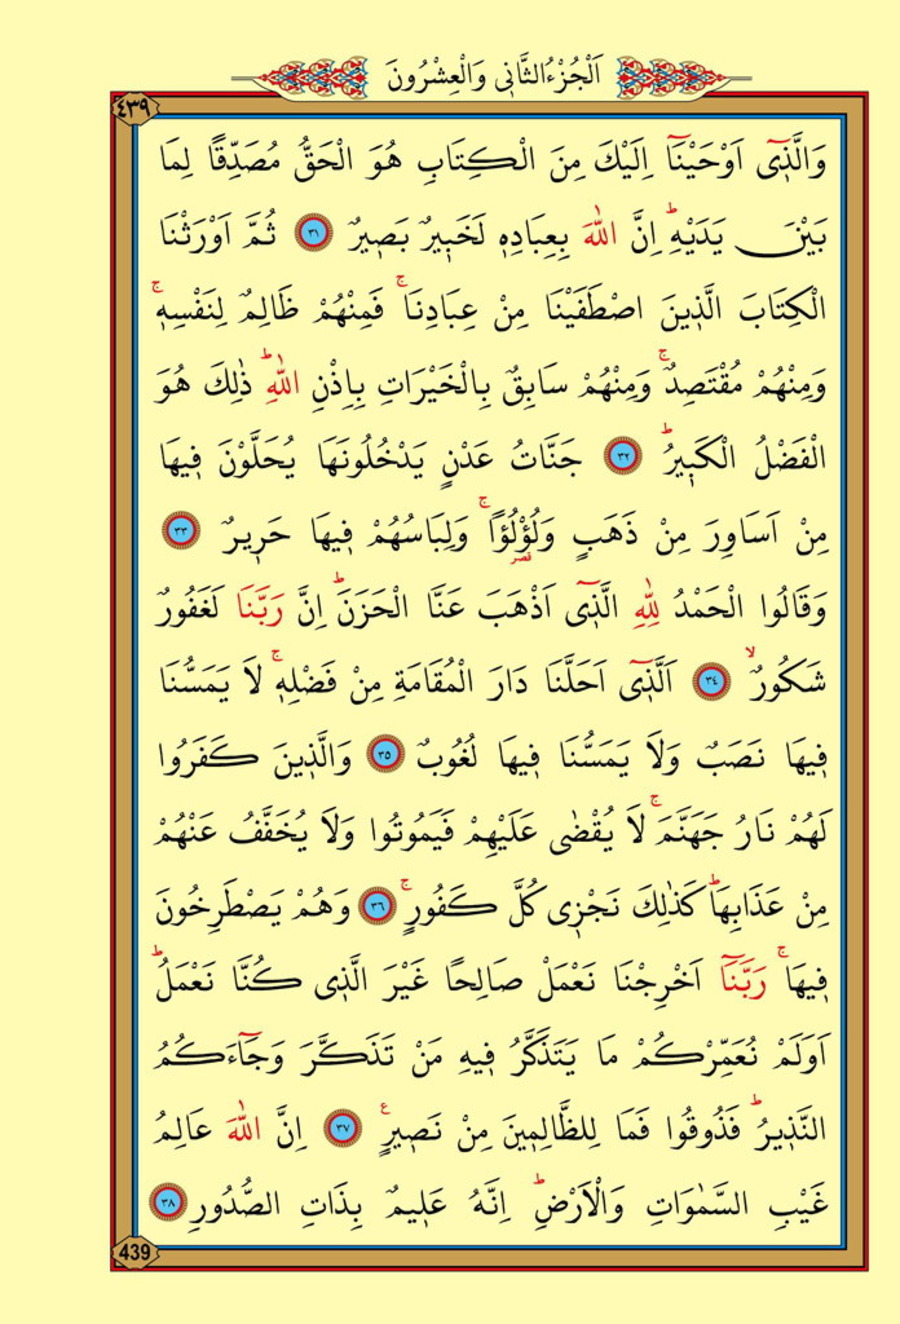 اَلْجُزْءُ الثَّانٖي وَالْعِشْرُونَ
٤٣٩
وَالَّذٖٓي اَوْحَيْنَٓا اِلَيْكَ مِنَ الْكِتَابِ هُوَ الْحَقُّ مُصَدِّقًا لِمَا
بَيْنَ يَدَيْهِؕ اِنَّ اللّٰهَ بِعِبَادِهٖ لَخَبٖيرٌ بَصٖيرٌ ٣١ ثُمَّ اَوْرَثْنَا
الْكِتَابَ الَّذٖينَ اصْطَفَيْنَا مِنْ عِبَادِنَاۚ فَمِنْهُمْ ظَالِمٌ لِنَفْسِهٖۚ
وَمِنْهُمْ مُقْتَصِدٌۚ وَمِنْهُمْ سَابِقٌ بِالْخَيْرَاتِ بِاِذْنِ اللّٰهِؕ ذٰلِكَ هُوَ
الْفَضْلُ الْكَبٖيرُؕ ٣٢ جَنَّاتُ عَدْنٍ يَدْخُلُونَهَا يُحَلَّوْنَ فٖيهَا
مِنْ اَسَاوِرَ مِنْ ذَهَبٍ وَلُؤْلُؤًاۚ وَلِبَاسُهُمْ فٖيهَا حَرٖيرٌ ٣٣
قصر
وَقَالُوا الْحَمْدُ لِلّٰهِ الَّذٖٓي اَذْهَبَ عَنَّا الْحَزَنَؕ اِنَّ رَبَّنَا لَغَفُورٌ
شَكُورٌۙ ٣٤ اَلَّذٖٓي اَحَلَّنَا دَارَ الْمُقَامَةِ مِنْ فَضْلِهٖۚ لَا يَمَسُّنَا
فٖيهَا نَصَبٌ وَلَا يَمَسُّنَا فٖيهَا لُغُوبٌ ٣٥ وَالَّذٖينَ كَفَرُوا
لَهُمْ نَارُ جَهَنَّمَۚ لَا يُقْضٰى عَلَيْهِمْ فَيَمُوتُوا وَلَا يُخَفَّفُ عَنْهُمْ
مِنْ عَذَابِهَاؕ كَذٰلِكَ نَجْزٖي كُلَّ كَفُورٍۚ ٣٦ وَهُمْ يَصْطَرِخُونَ
فٖيهَاۚ رَبَّنَٓا اَخْرِجْنَا نَعْمَلْ صَالِحًا غَيْرَ الَّذٖي كُنَّا نَعْمَلُؕ
اَوَلَمْ نُعَمِّرْكُمْ مَا يَتَذَكَّرُ فٖيهِ مَنْ تَذَكَّرَ وَجَٓاءَكُمُ
النَّذٖيرُؕ فَذُوقُوا فَمَا لِلظَّالِمٖينَ مِنْ نَصٖيرٍ ع ٣٧ اِنَّ اللّٰهَ عَالِمُ
غَيْبِ السَّمٰوَاتِ وَالْاَرْضِؕ اِنَّهُ عَلٖيمٌ بِذَاتِ الصُّدُورِ ٣٨
439